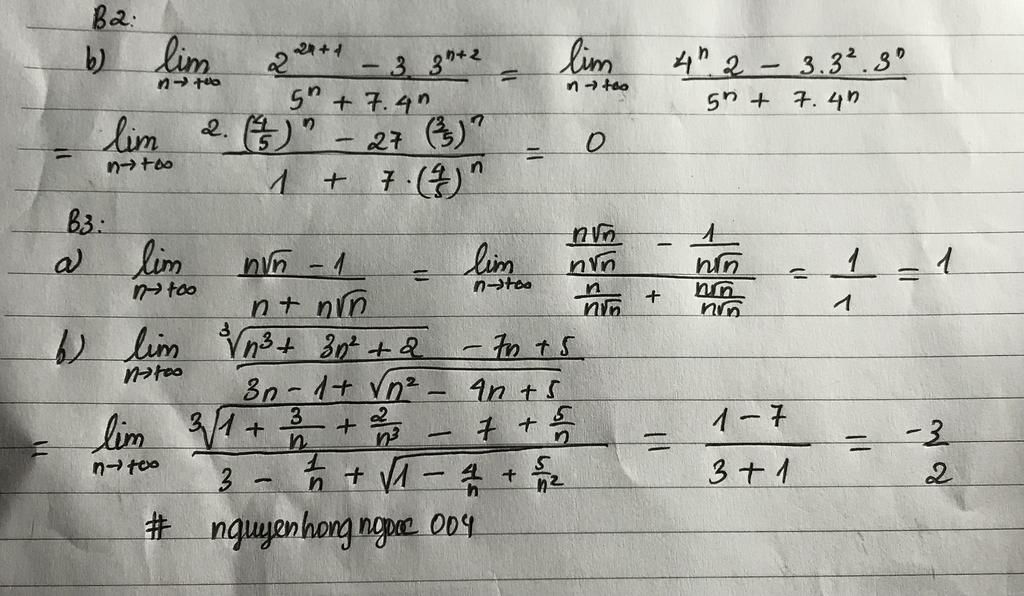 B2:
b) lim n→+∞ (2^(2n+1) - 3. 3^(n+2)) / (5^n + 7. 4^n) = lim n→+∞ (4^n. 2 - 3.3^2. 3^n) / (5^n + 7. 4^n)
= lim n→+∞ (2. (4/5)^n - 27 (3/5)^n) / (1 + 7.(4/5)^n) = 0
B3:
a) lim n→+∞ (n√n - 1) / (n + n√n) = lim n→+∞ (n√n/n√n - 1/n√n) / (n/n√n + n√n/n√n) = 1/1 = 1
b) lim n→+∞ (∛(n^3 + 3n^2 + 2) - 7n + 5) / (3n - 1 + √(n^2 - 4n + 5))
= lim n→+∞ (∛(1 + 3/n + 2/n^3) - 7 + 5/n) / (3 - 1/n + √(1 - 4/n + 5/n^2)) = (1 - 7) / (3 + 1) = -3/2
# nguyenhongngoc 004